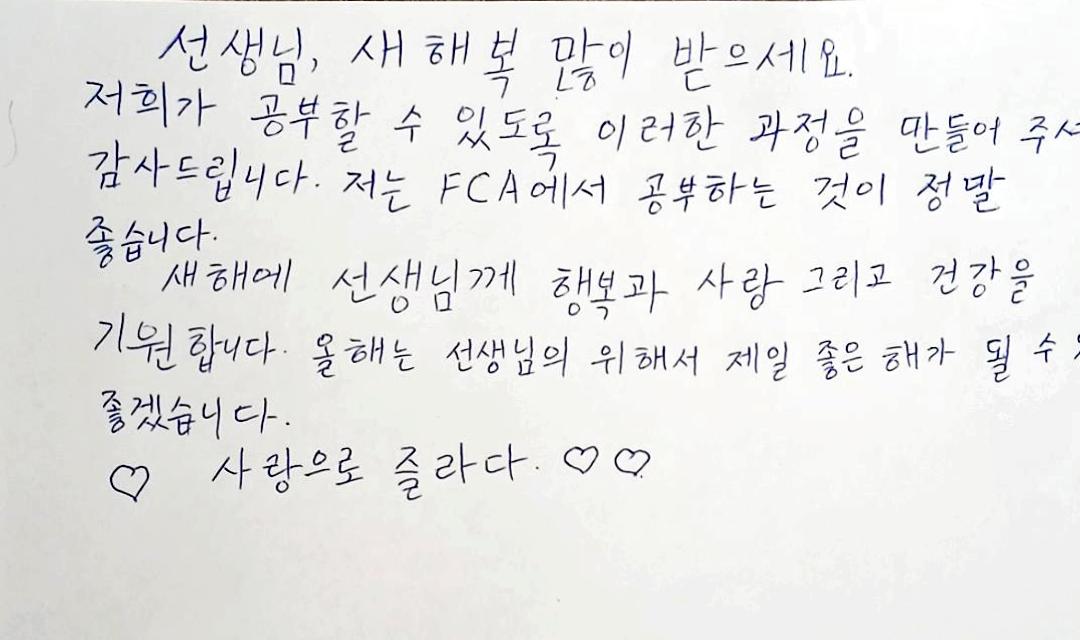 선생님, 새해 복 많이 받으세요.
저희가 공부할 수 있도록 이러한 과정을 만들어 주셔
감사드립니다. 저는 FCA에서 공부하는 것이 정말
좋습니다.
새해에 선생님께 행복과 사랑 그리고 건강을
기원합니다. 올해는 선생님의 위해서 제일 좋은 해가 될 수
좋겠습니다.
♡ 사랑으로 줄라다. ♡ ♡